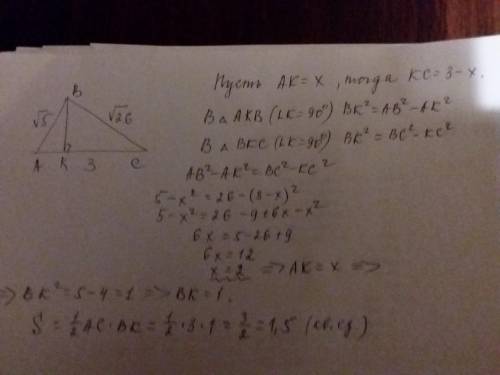 Пусть AK = x, тогда KC = 3 - x.
B
√5
√26
A K 3 C
В △ AKB (∠K = 90°) BK² = AB² - AK²
В △ BKC (∠K = 90°) BK² = BC² - KC²
AB² - AK² = BC² - KC²
5 - x² = 26 - (3 - x)²
5 - x² = 26 - 9 + 6x - x²
6x = 5 - 26 + 9
6x = 12
x = 2 => AK = x =>
=> BK² = 5 - 4 = 1 => BK = 1.
S = 1/2 AC · BK = 1/2 · 3 · 1 = 3/2 = 1,5 (кв. ед.)